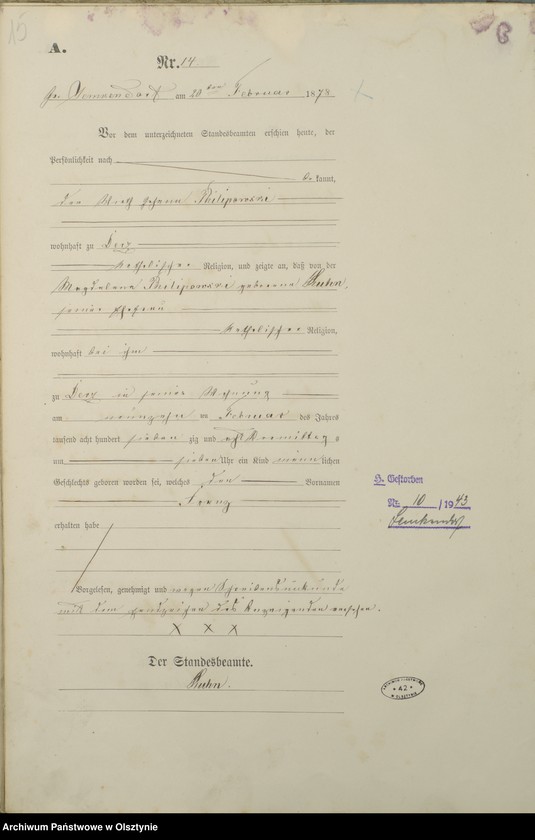 15
A.
B
Nr. 14
am 20 ten Februar 1878.
Vor dem unterzeichneten Standesbeamten erschien heute, der
Persönlichkeit nach
be kannt,
der Wirth Johann Philipowski
wohnhaft zu Derz
katholischer Religion, und zeigte an, daß von der
Magdalena Philipowski geborene Kuhn,
seiner Ehefrau
katholischer Religion,
wohnhaft bei ihm
zu Derz in seiner Wohnung
am neunzehn ten Februar des Jahres
tausend acht hundert sieben zig und acht Vormittags
um sieben Uhr ein Kind männlichen
Geschlechts geboren worden sei, welches den Vornamen
Franz
erhalten habe
Vorgelesen, genehmigt und wegen Schreibensunkunde
mit dem Handzeichen des Anzeigenden versehen.
X X X
Der Standesbeamte.
Kuhn.
Gestorben
Nr. 10 / 1943
A2
W OLSZTYNIE
Archiwum Państwowe w Olsztynie